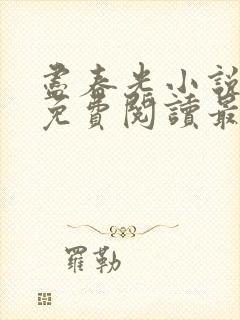 盡春光小說
免費閱讀最
羅勒